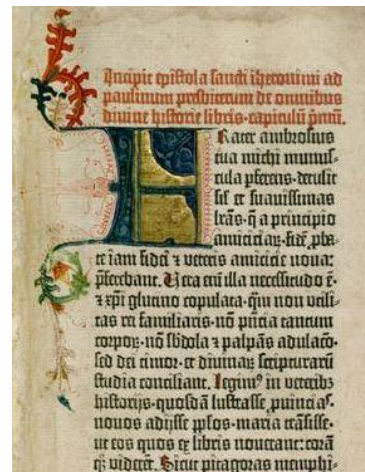 Incipit epistola sancti iheronimi ad
paulinum presbiterum de omnibus
divine historie libris·capitulū pmū.
Frater ambrosius
tua michi munus-
cula pferens·detulit
sil et suavissimas
lrās·q a principio
amiciciaȝ·fidē pba-
te iam fidei et veteris amicicie nova:
pferebant. Vera enī illa necessitudo ē·
et xpi glutino copulata·quā non utili-
tas rei familiaris·nō pntia tantum
corporū·nō sbdola et palpās adulacō·
sed dei timor·et divinaȝ scripturarū
studia conciliant. Legimꝰ in veteribȝ
historijs·quosdā lustrasse pvincias·
novos adijsse pplos·maria trāsisse·
ut eos quos ex libris noverant: corā
qȝ viderēt. Sicut pitagoras memphi-